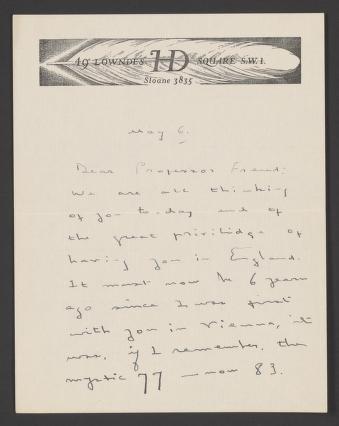 49 LOWNDES HD SQUARE S.W.1.
Sloane 3835
May 6.
Dear Professor Freud:
We are all thinking
of you to-day and of
the great priviledge of
having you in England.
It must now be 6 years
ago since I was first
with you in Vienna, it
was, if I remember, the
mystic 77 — now 83.